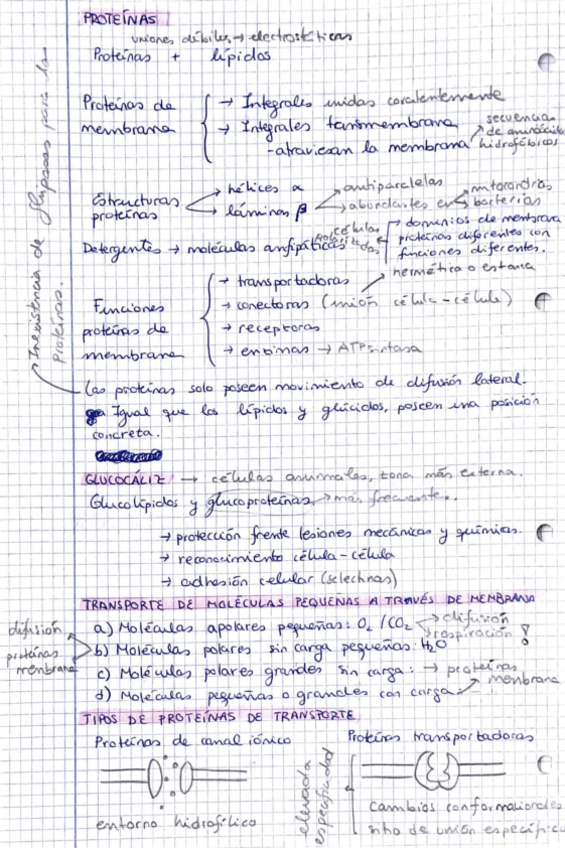 PROTEÍNAS
uniones débiles → electrostáticas
Proteínas + lípidos
Proteínas de membrana
→ Integrales unidas covalentemente
→ Integrales transmembrana
- atraviesan la membrana
secuencia de aminoácidos hidrofóbicos
Estructuras proteínas
hélices α
láminas β
antiparalelas
abundantes en
mitocondrias
bacterias
Detergentes → moléculas anfipáticas
células
dominios de membrana
proteínas diferentes con
funciones diferentes.
Funciones proteínas de membrana
→ transportadoras
→ conectoras (unión célula-célula)
hermética o estanca
→ receptoras
→ enzimas → ATPsintasa
Inexistencia de flipasas para las Proteínas.
Las proteínas solo poseen movimiento de difusión lateral.
Igual que los lípidos y glúcidos, poseen una posición
concreta.
GLUCOCÁLIZ → células animales, zona más externa.
Glucolípidos y glucoproteínas, → más frecuente..
→ protección frente lesiones mecánicas y químias.
→ reconocimiento célula-célula
→ adhesión celular (selectinas)
TRANSPORTE DE MOLÉCULAS PEQUEÑAS A TRAVÉS DE MEMBRANA
a) Moléculas apolares pequeñas: O₂ / CO₂
difusión
respiración !
difusión
proteínas membrana
b) Moléculas polares sin carga pequeñas: H₂O
c) Moléculas polares grandes sin carga: → proteínas
membrana
d) Moléculas pequeñas o grandes con carga:
TIPOS DE PROTEÍNAS DE TRANSPORTE
Proteínas de canal iónico
Proteínas transportadoras
entorno hidrofílico
elevada especificidad
cambios conformacionales
sitio de unión específico